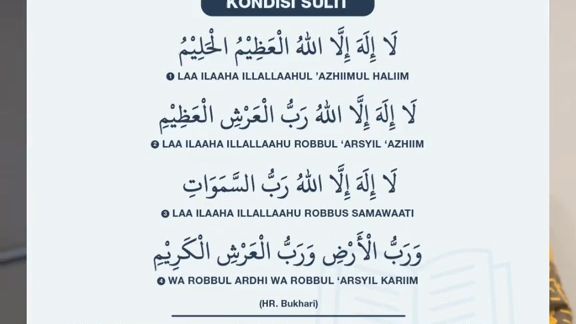 KONDISI SULIT
لَا إِلَهَ إِلَّا اللهُ الْعَظِيْمُ الْحَلِيْمُ
❶ LAA ILAAHA ILLALLAAHUL 'AZHIIMUL HALIIM
لَا إِلَهَ إِلَّا اللهُ رَبُّ الْعَرْشِ الْعَظِيْمِ
❷ LAA ILAAHA ILLALLAAHU ROBBUL ‘ARSYIL ‘AZHIIM
لَا إِلَهَ إِلَّا اللهُ رَبُّ السَّمَوَاتِ
❸ LAA ILAAHA ILLALLAAHU ROBBUS SAMAWAATI
وَرَبُّ الْأَرْضِ وَرَبُّ الْعَرْشِ الْكَرِيْمِ
❹ WA ROBBUL ARDHI WA ROBBUL ‘ARSYIL KARIIM
(HR. Bukhari)